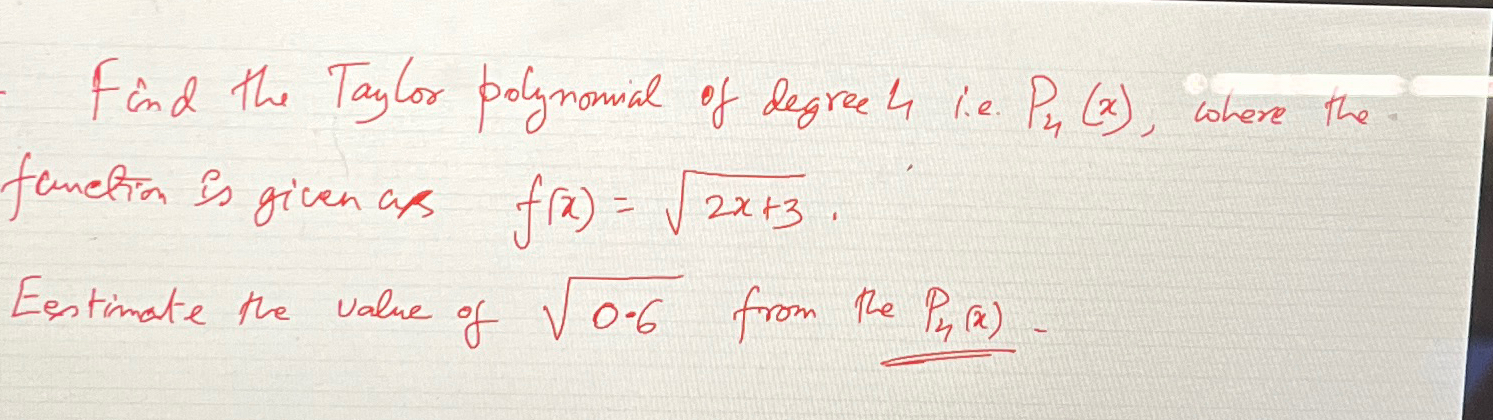 Find the Taylor polynomial of degree 4 i.e. P₄(x), where the
function is given as f(x) = √(2x+3).
Eestimate the value of √0.6 from the P₄(x).